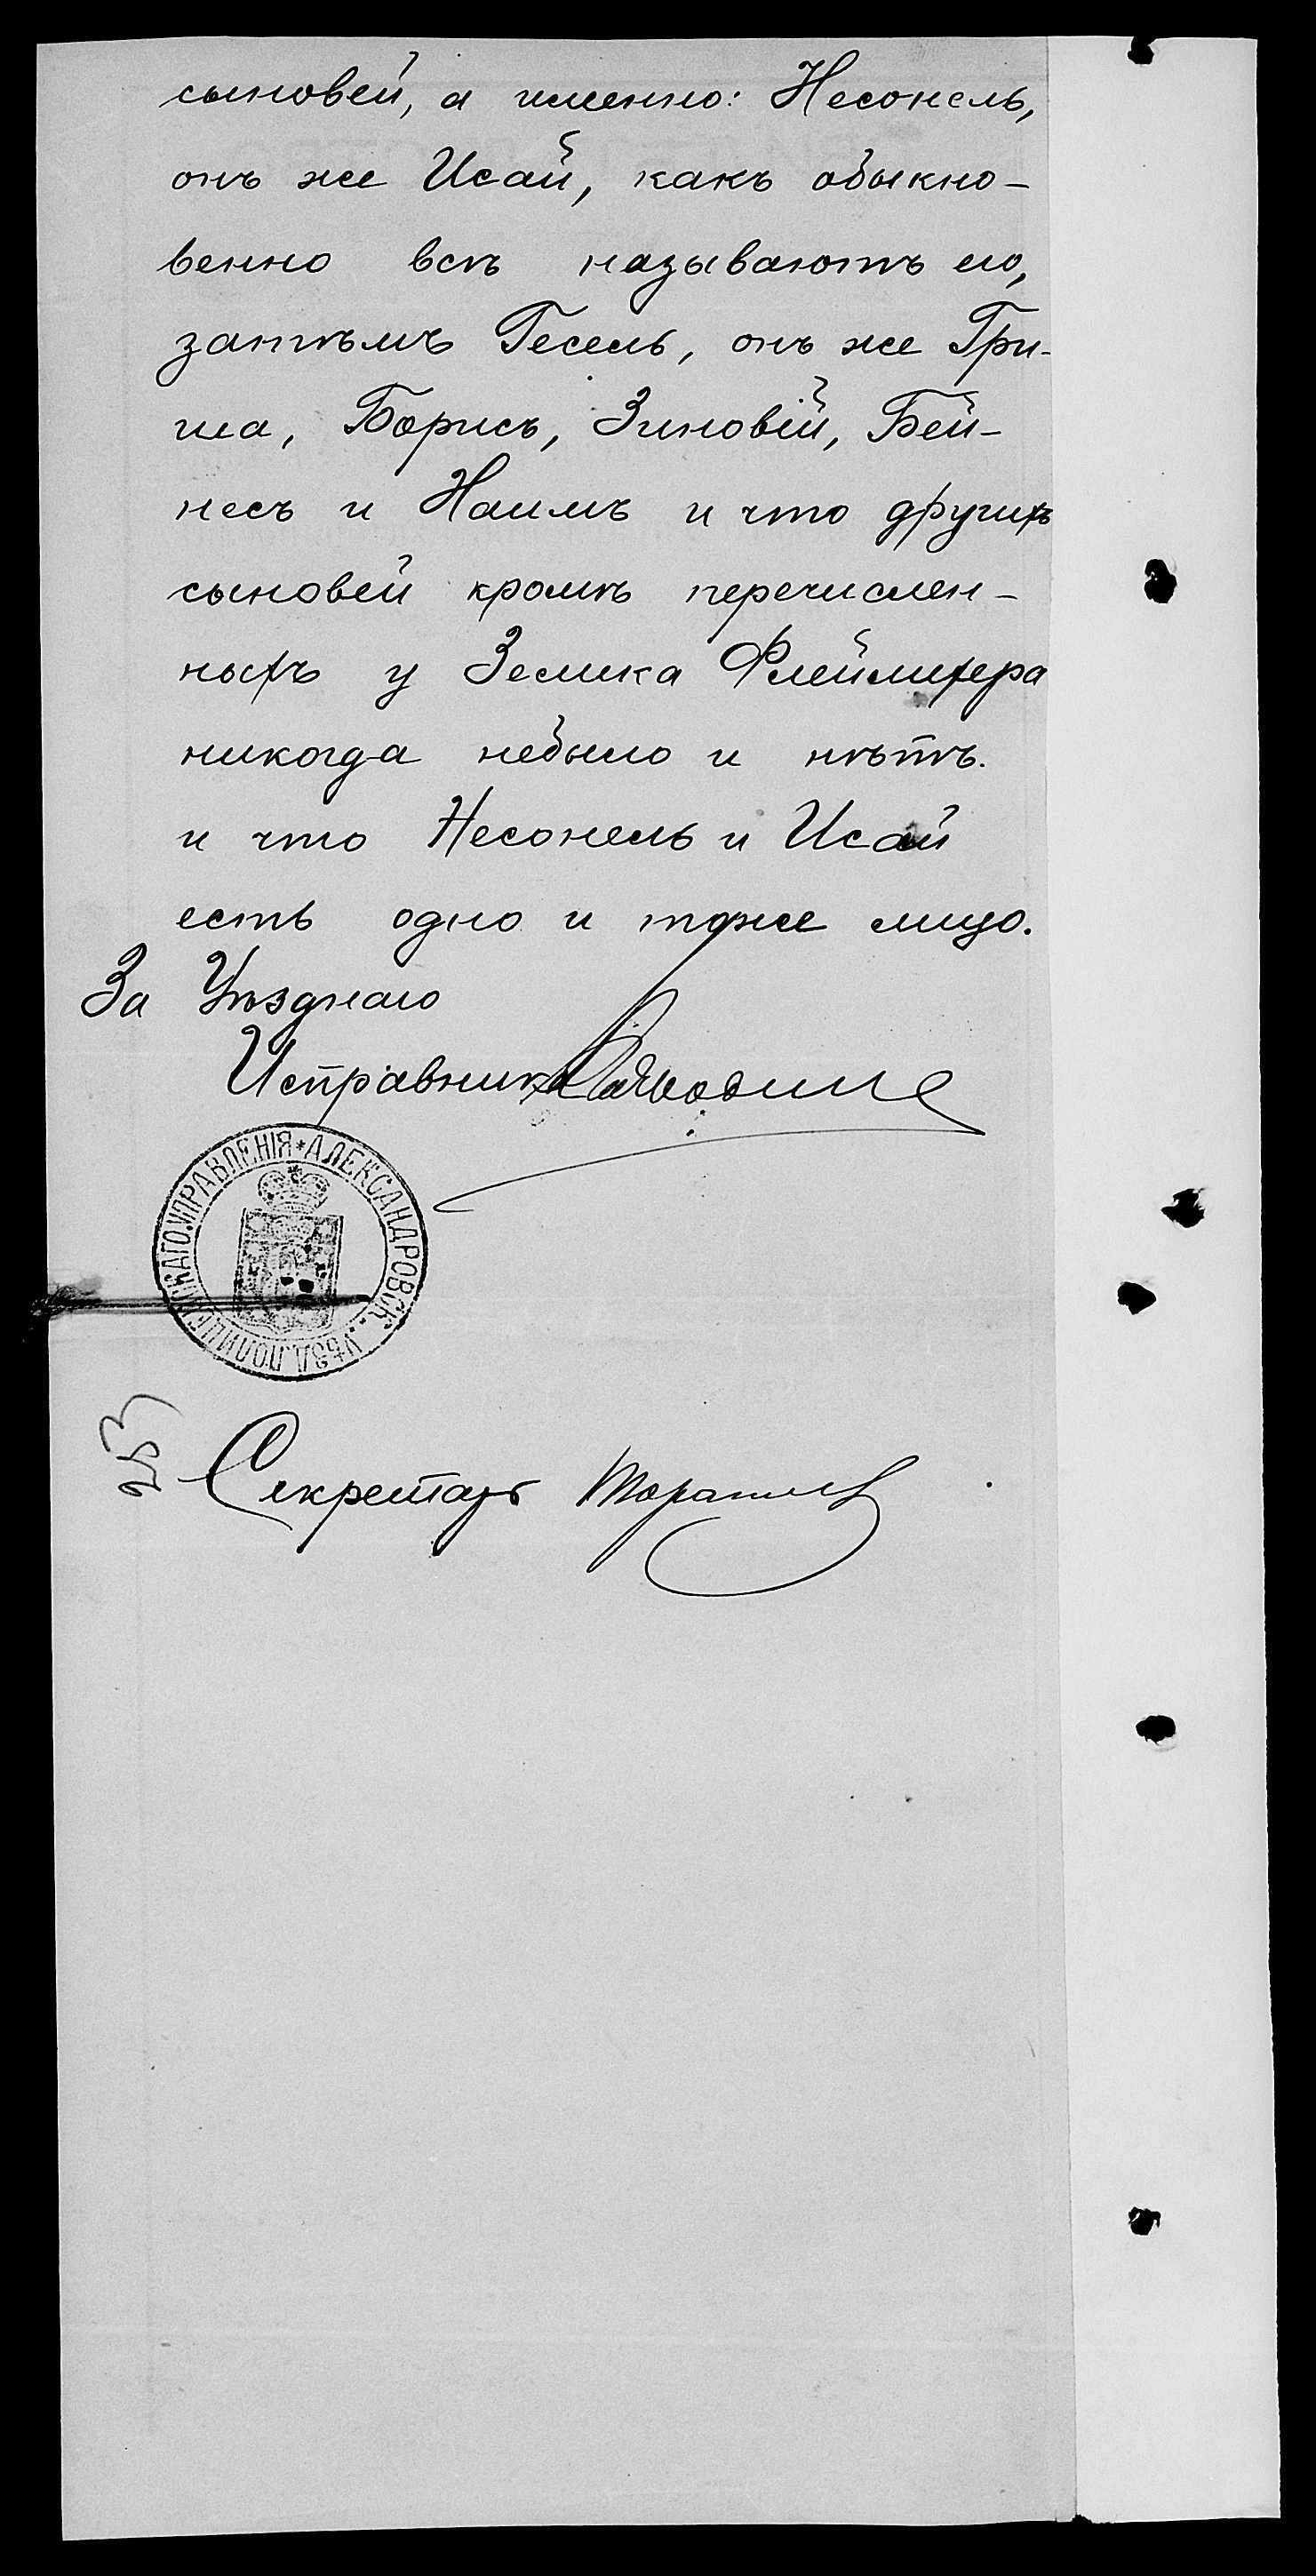 сыновей, а именно: Несонель,
онъ же Исай, какъ обыкно-
венно всѣ называютъ его,
затѣмъ Гесель, онъ же Гри-
ша, Борисъ, Зиновій, Бей-
несъ и Наимъ и что другихъ
сыновей кромѣ перечислен-
ныхъ у Зелика Флейлихера
никогда небыло и нѣтъ.
и что Несонель и Исай
есть одно и тоже лицо.
За Уѣзднаго
Исправника
АЛЕКСАНДРОВСК. УѢЗД. ПОЛИЦЕЙСКАГО УПРАВЛЕНІЯ
Секретарь